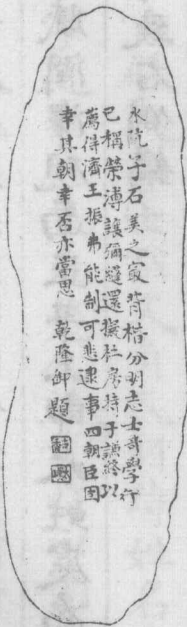 水阬子石美之最背楷分明志士奇學行
已稱榮溥讓彌縫還擬杜房持于謙終以
薦得濟王振弗能制可悲逮事四朝臣固
幸其朝幸否亦當思 乾隆御題